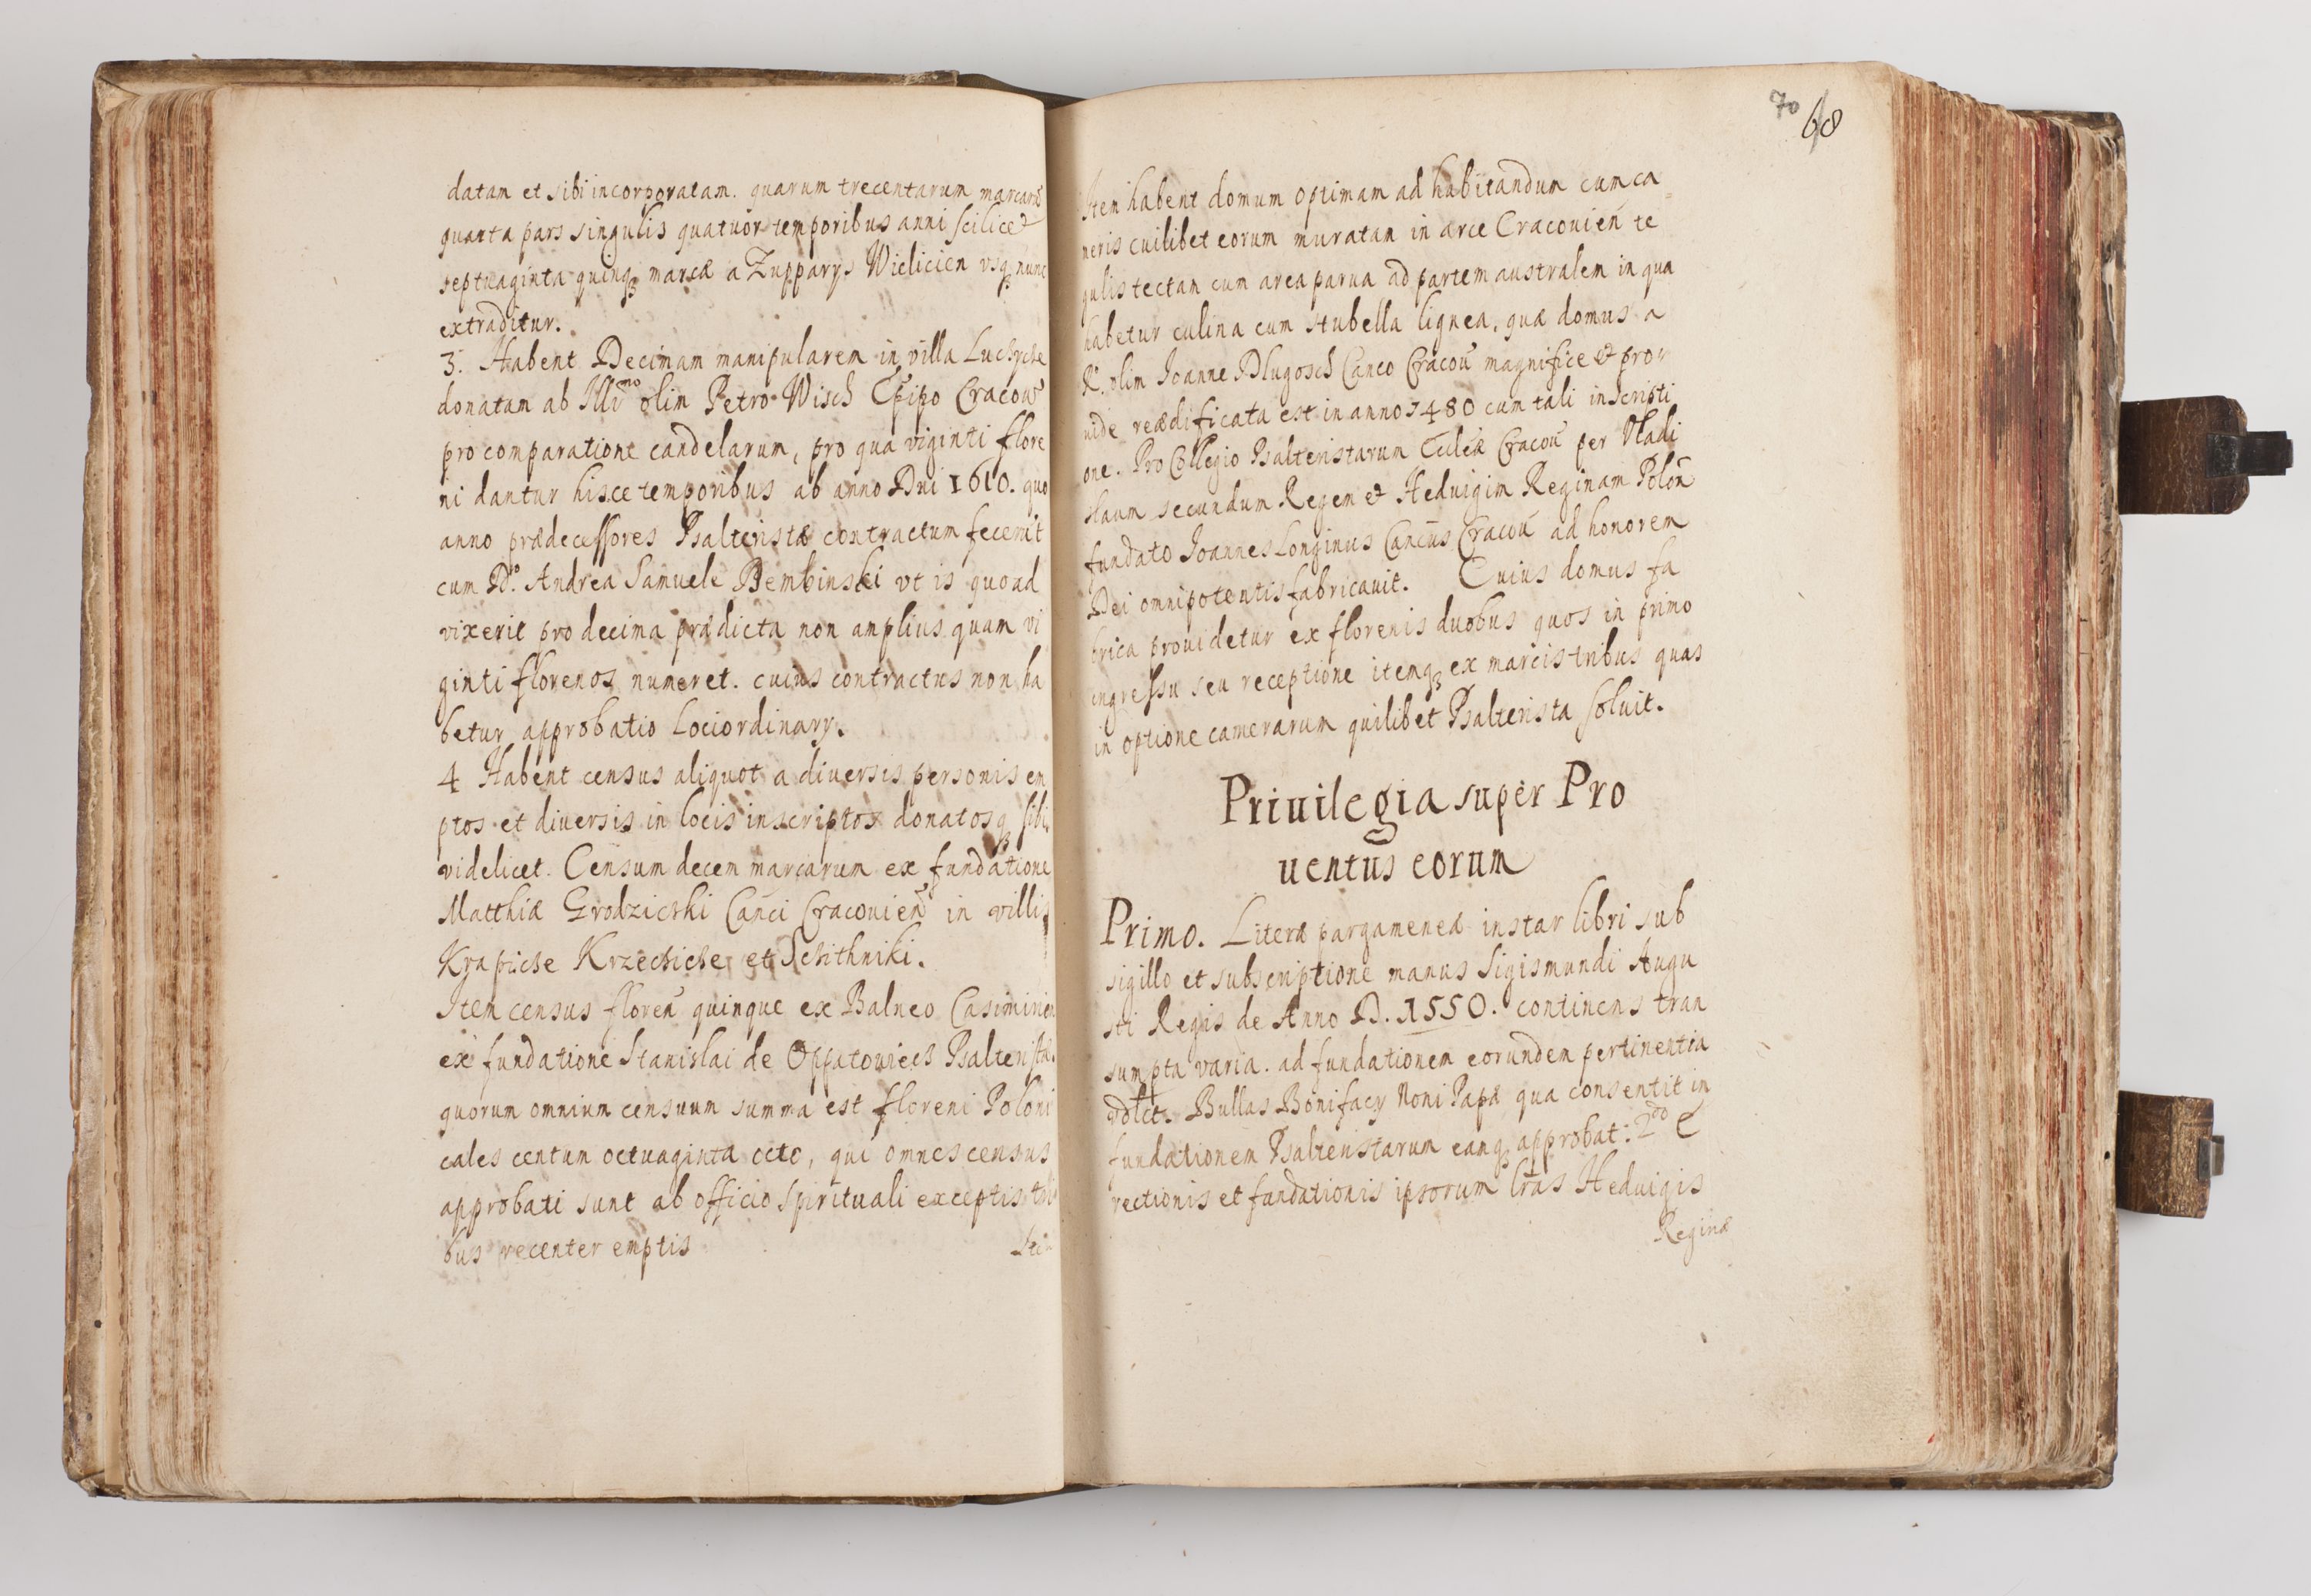 datam et sibi incorporatam. quarum trecentarum marcarū
quarta pars singulis quatuor temporibus anni scilicet
septuaginta quinqȝ marcæ a Zupparys Wielicien vsqȝ nunc
extraditur.
3. Habent Decimam manipularem in villa Luchyche
donatam ab Illṽᵐᵒ olim Petro Wisch Ep̃ip̃o Cracou͂
pro comparatione candelarum, pro qua viginti flore
ni dantur hisce temporibus ab anno Dni 1610. quo
anno prædecessores Psalteristæ contractum fecerũt
cum Dº. Andrea Samuele Bembinski vt is quoad
vixerit pro decima prædicta non amplius quam vi
ginti florenos numeret. cuius contractus non ha
betur approbatio Lociordinarÿ.
4 Habent census aliquot a diuersis personis em
ptos et diuersis in locis inscriptos donatosqȝ sibi
videlicet. Censum decem marcarum ex fundatione
Matthiæ Grodzicski Can̄ci Cracouien̄ in villis
Krapiche Krzechiche et Schithniki.
Item census floreñ quinque ex Balneo Casimirien
ex fundatione Stanislai de Oppatowiecz Psalteristæ.
quorum omnium censuum summa est floreni Poloni
cales centum octuaginta octo, qui omnes census
approbati sunt ab officio spirituali exceptis tri
bus recenter emptis
Ite
70 68
Item habent domum optimam ad habitandum cum ca
meris cuilibet eorum muratam in arce Cracouien̄ te
gulis tectam cum area parua ad partem australem in qua
habetur culina cum stubella lignea, quæ domus a
R. olim Joanne Dlugosch Canco Cracou͂ magnifice et pro
uide reædificata est in anno 1480 cum tali inscripti
one. Pro Collegio Psalteristarum Eccl̃iæ Cracou͂ per Vladi
slaum secundum Regem et Heduigim Reginam Polon̄
fundato Joannes Longinus Can̄cus Cracou͂ ad honorem
Dei omnipotentis fabricauit. Cuius domus fa
brica prouidetur ex florenis duobus quos in primo
ingressu seu receptione itemqȝ ex marcis tribus quas
in optione camerarum quilibet Psalterista soluit.
Priuilegia super Pro
uentus eorum
Primo. Literæ pargameneæ instar libri sub
sigillo et subscriptione manus Sigismundi Augu
sti Regis de Anno D. 1550. continens tran
sumpta varia. ad fundationem eorundem pertinentia
vdlct. Bullas Bonifacÿ Noni Papæ qua consentit in
fundationem Psalteristarum eamqȝ approbat: 2ᵈᵒ E
rectionis et fundationis ipsorum Lr̃as Heduigis
Reginæ